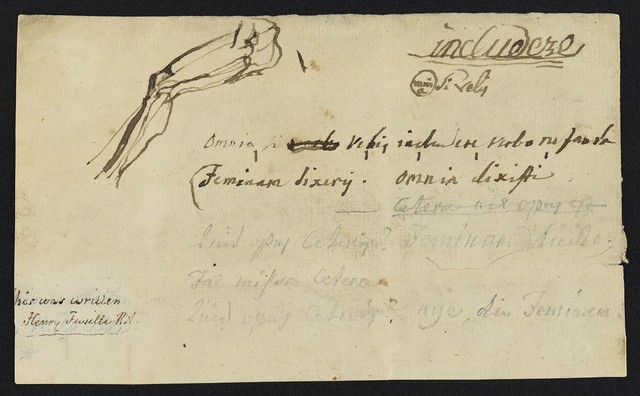 includere
si velis
Omnia si velis includere verbo nefanda
Feminam dixeris. omnia dixisti
Cetera nil opus
Quid opus Ceteris? Feminam
Fac missa Cetera
Quid opus Ceteris? age, dic Feminam.
his was written
Henry Fuselli RA.